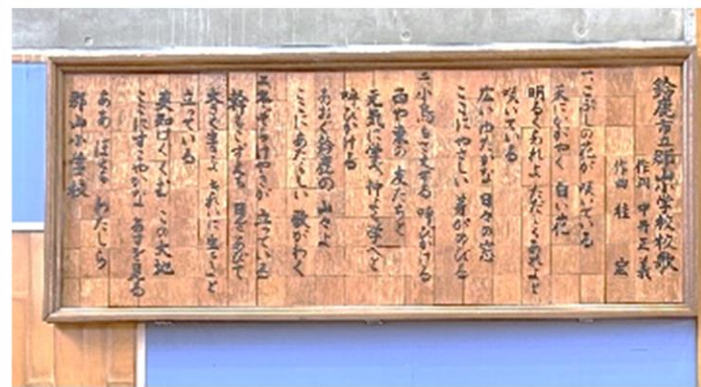 鈴鹿市立郡山小学校校歌
作詞 中井正義
作曲 桂 宏
一、こぶしの花が 咲いている
天にかがやく 白い花
明るくあれよ ただしくあれよと
咲いている
広いゆたかな 日々の窓
ここにやさしい 芽がのびる
二、小鳥もさえずる 呼びかける
西や東の 友だちと
元気に学べ 仲よく学べと
呼びかける
あおぐ鈴鹿の 山々よ
ここにあたらしい 歌がわく
三、
けやきが 立っている
幹もこずえも 日をあびて
立っている
英知はぐくむ この大地
ここにすこやかな
ああ
われら
郡山小学校